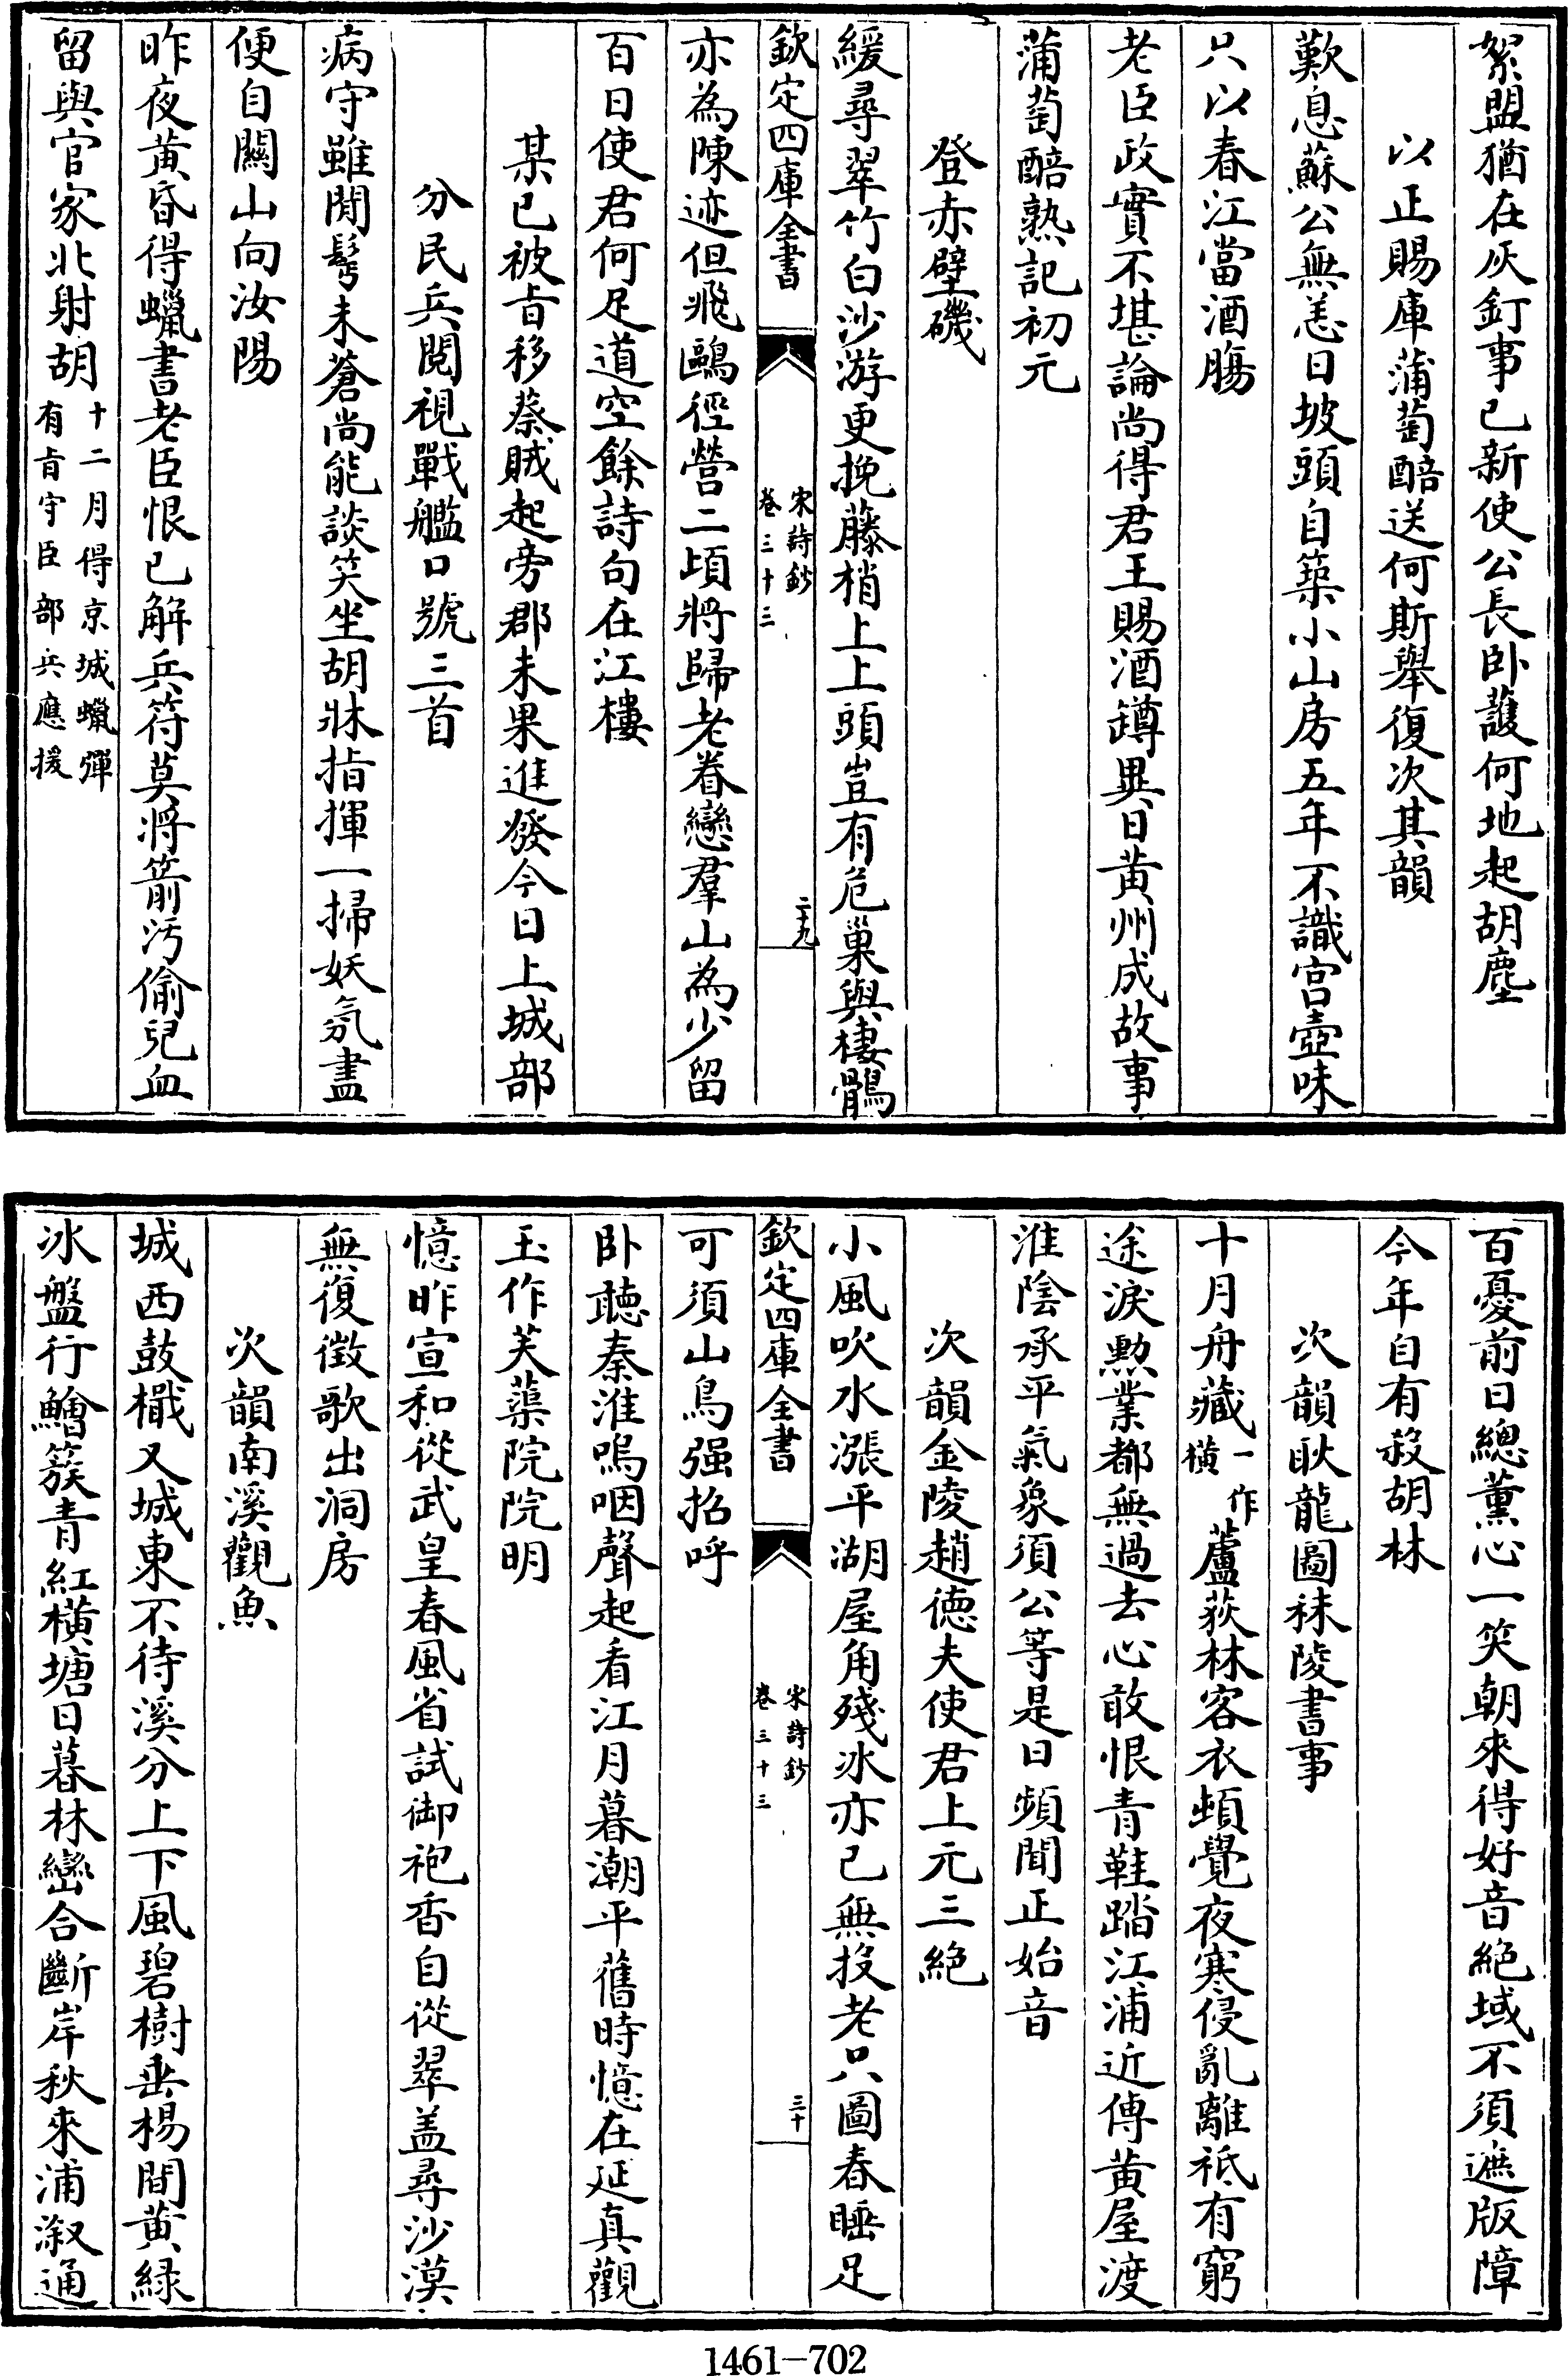 絮盟猶在灰釘事已新使公長卧護何地起胡塵
以正賜庫蒲萄醅送何斯舉復次其韻
歎息蘇公無恙日坡頭自築小山房五年不識宫壺味
只以春江當酒膓
老臣政實不堪論尚得君王賜酒罇異日黄州成故事
蒲萄醅熟記初元
登赤壁磯
緩尋翠竹白沙游更挽藤梢上上頭豈有危巢與棲鶻
欽定四庫全書
宋詩鈔
卷三十三
二十九
亦為陳迹但飛鷗徑營二頃將歸老眷戀羣山為少留
百日使君何足道空餘詩句在江樓
某已被㫖移蔡賊起旁郡未果進發今日上城部
分民兵閲視戰艦口號三首
病守雖閒髩未蒼尚能談笑坐胡牀指揮一掃妖氛盡
便自關山向汝陽
昨夜黄昏得蠟書老臣恨已解兵符莫將箭汚偷兒血
留與官家北射胡
十二月得京城蠟彈
有㫖守臣部兵應援
百憂前日總薰心一笑朝來得好音絶域不須遮版障
今年自有殺胡林
次韻耿龍圖秣陵書事
十月舟藏
一作
横
蘆荻林客衣頓覺夜寒侵亂離秪有窮
途淚勲業都無過去心敢恨青鞋踏江浦近傳黄屋渡
淮陰承平氣象須公等是日頻聞正始音
次韻金陵趙徳夫使君上元三絶
小風吹水漲平湖屋角殘冰亦已無投老只圖春睡足
欽定四庫全書
宋詩鈔
卷三十三
三十
可須山鳥强招呼
卧聽秦淮嗚咽聲起看江月暮潮平舊時憶在延真觀
玉作芙蕖院院明
憶昨宣和從武皇春風省試御袍香自從翠盖尋沙漠
無復徵歌出洞房
次韻南溪觀魚
城西鼓檝又城東不待溪分上下風碧樹垂楊間黄緑
冰盤行鱠簇青紅横塘日暮林巒合斷岸秋來浦溆通
1461—702